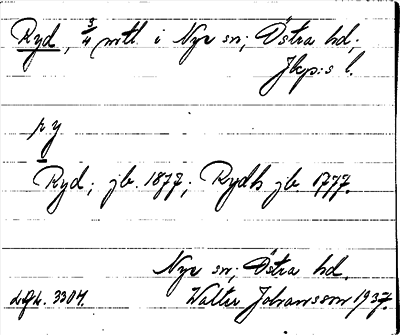 Ryd, 3/4 mtl. i Nye sn; Östra hd;
Jkp:s l.
ry
Ryd; jb. 1877; Rydh jb. 1777.
Nye sn; Östra hd.
Lgh. 3304 Walter Johansson 1937.